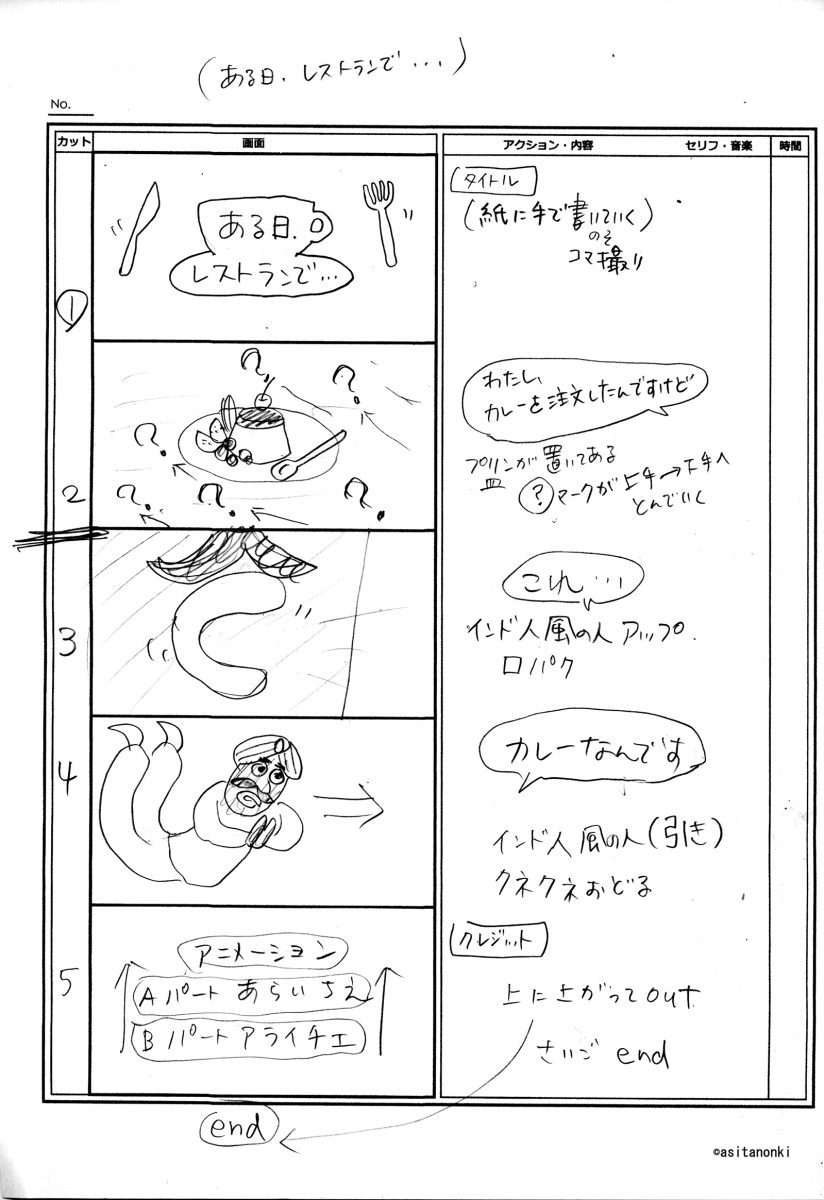 (ある日、レストランで...)
No.
カット 画面 アクション・内容 セリフ・音楽 時間
①
ある日、
レストランで...
タイトル
(紙に手で書いていく)
のを
コマ撮り
2
?
?
?
?
?
?
わたし、
カレーを注文したんですけど
プリンが置いてある
皿
?マークが上手→下手へ
とんでいく
3
これ...
インド人風の人アップ.
口パク
4
カレーなんです
インド人風の人(引き)
クネクネおどる
5
アニメーション
Aパート あらいちえ
Bパート アライチエ
クレジット
上に上がってout
さいご end
end
©asitanonki